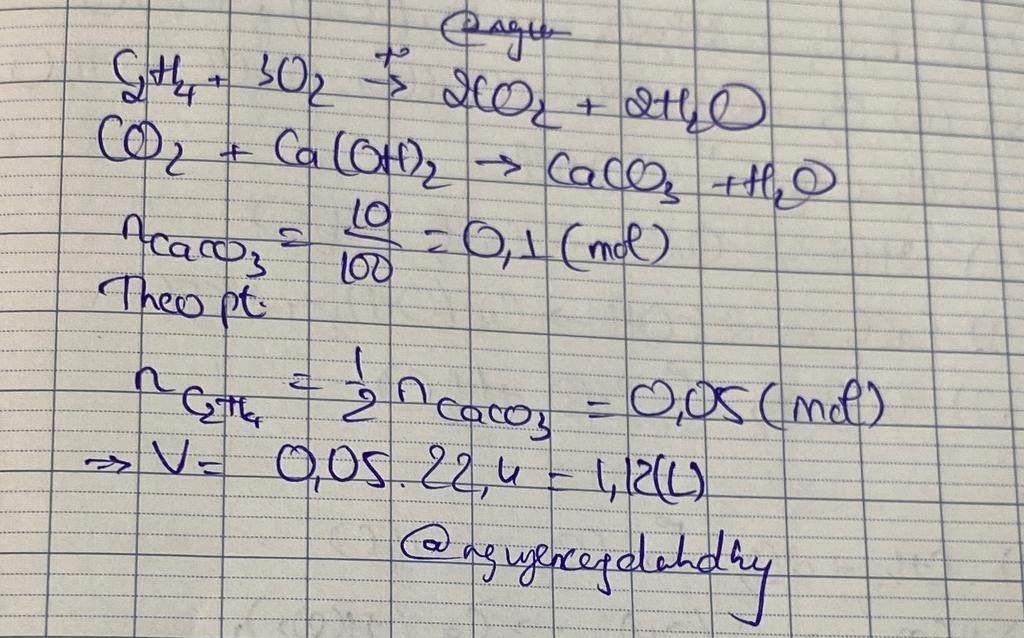 C₂H₄ + 3O₂ →(t°) 2CO₂ + 2H₂O
CO₂ + Ca(OH)₂ → CaCO₃ + H₂O
nCaCO₃ = 10/100 = 0,1 (mol)
Theo pt:
nC₂H₄ = 1/2 nCaCO₃ = 0,05 (mol)
→ V = 0,05 . 22,4 = 1,12(L)